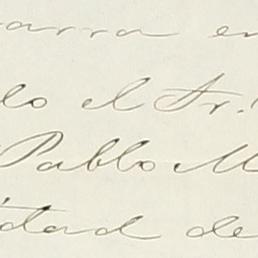 arra en
lo el Sr.
Pablo M
idad de